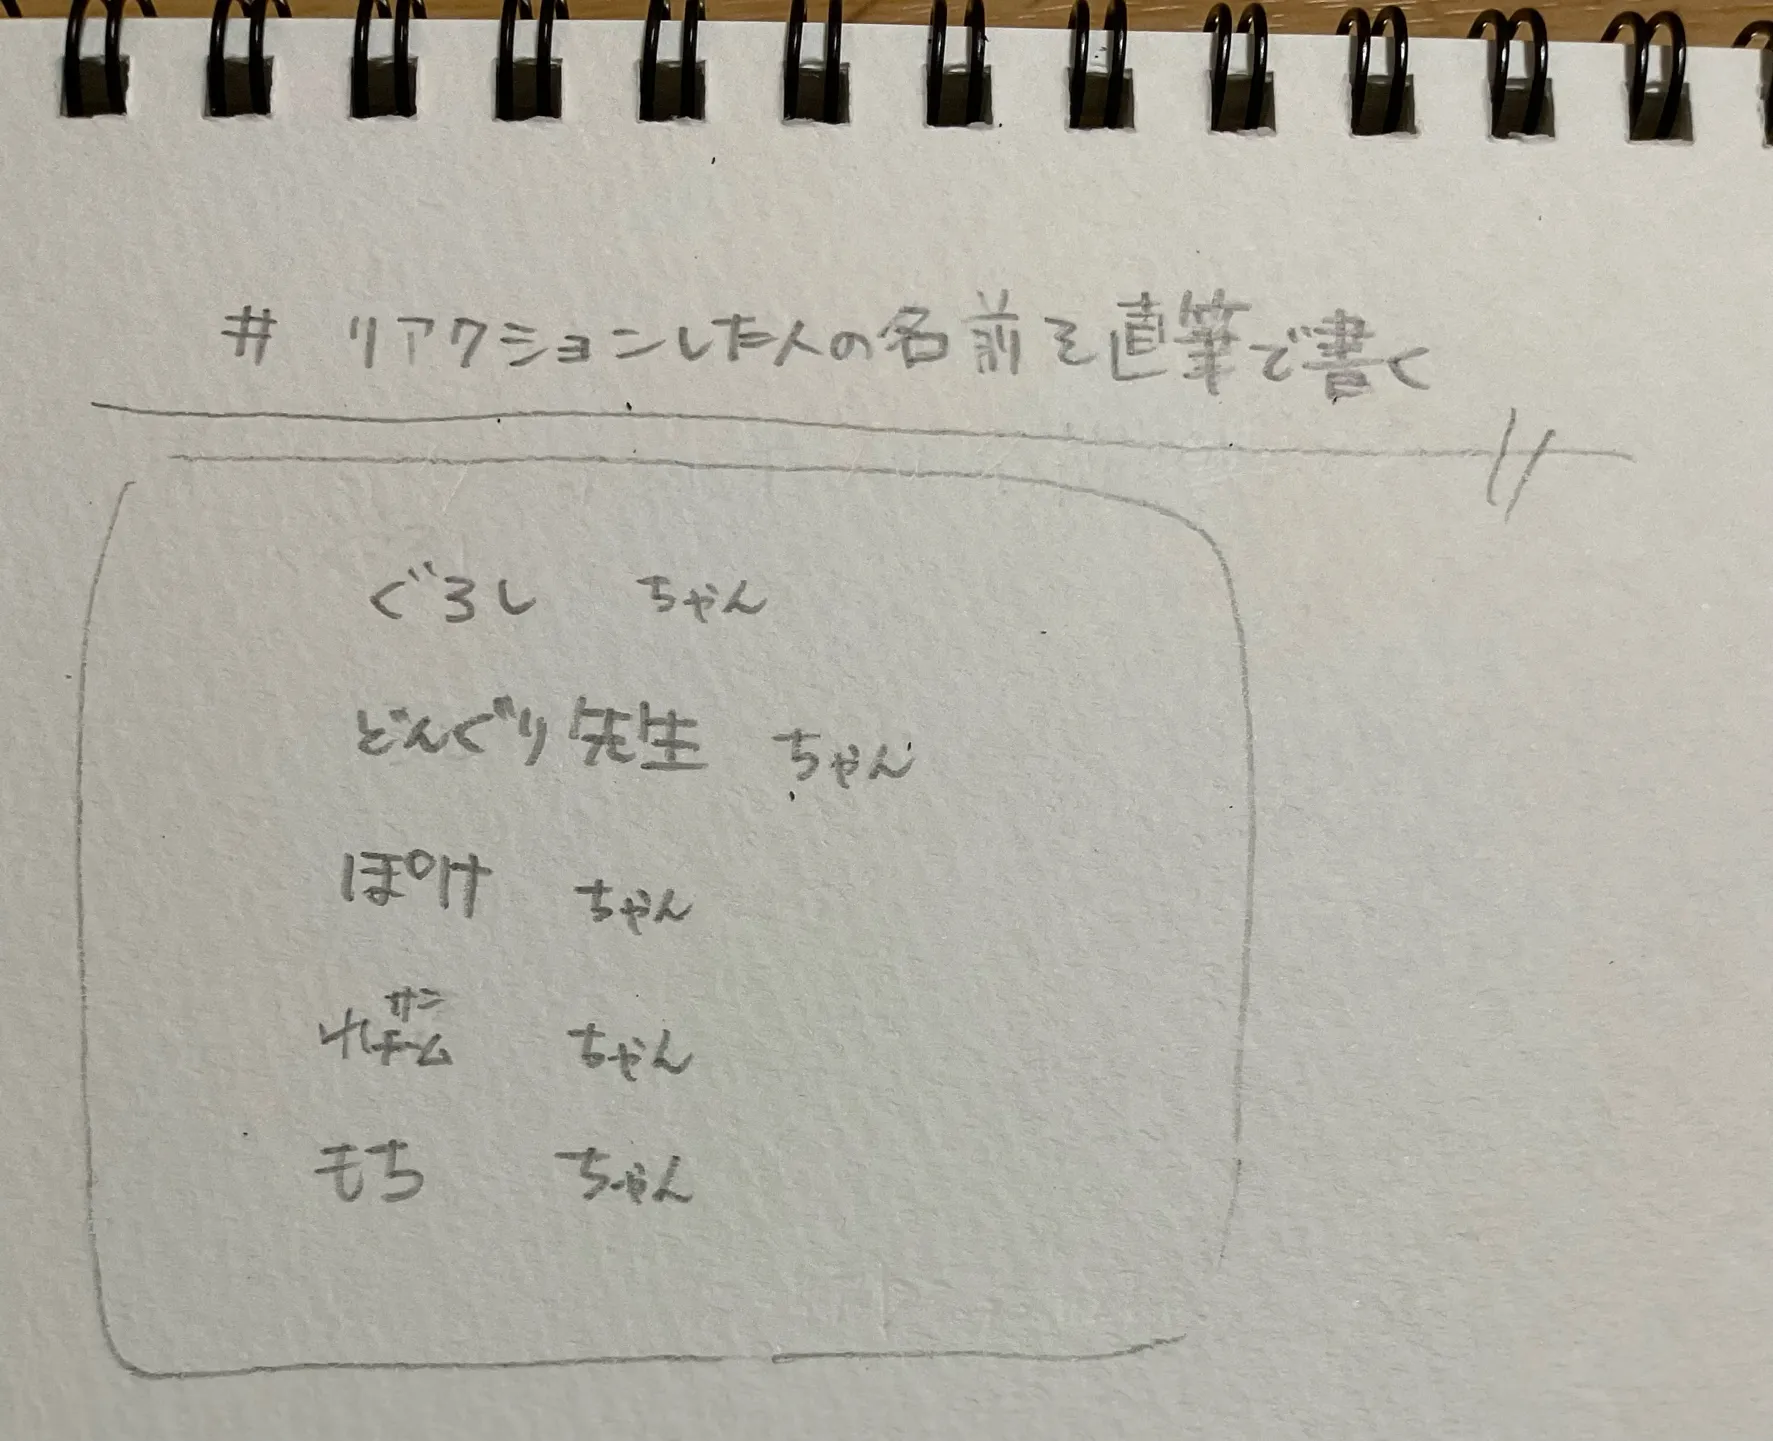 # リアクションした人の名前を直筆で書く
ぐろし ちゃん
どんぐり先生 ちゃん
ぽけ ちゃん
ちゃん
もち ちゃん